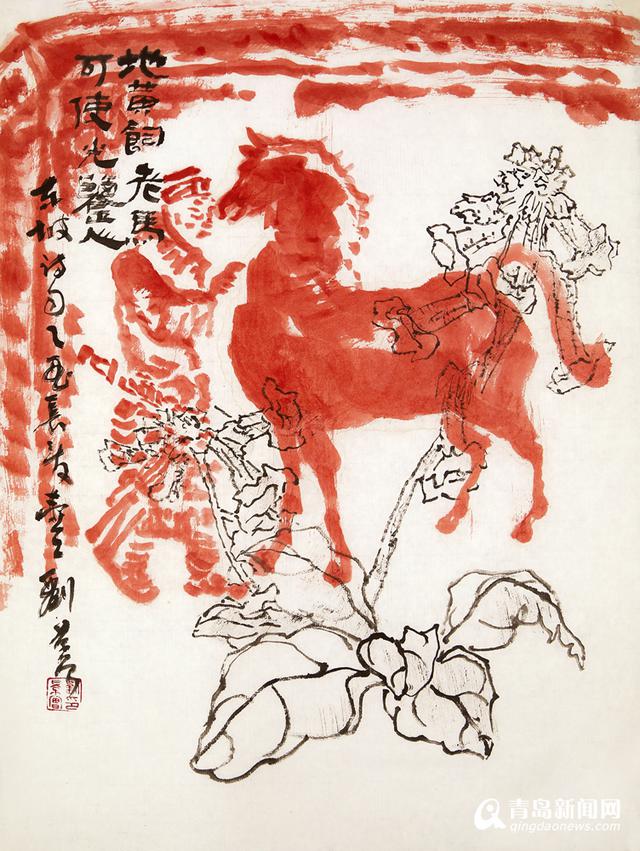 地黄飼老馬
可使光鑒人
东坡诗句乙丑長夏 劉
青岛新闻网
qingdaonews.com